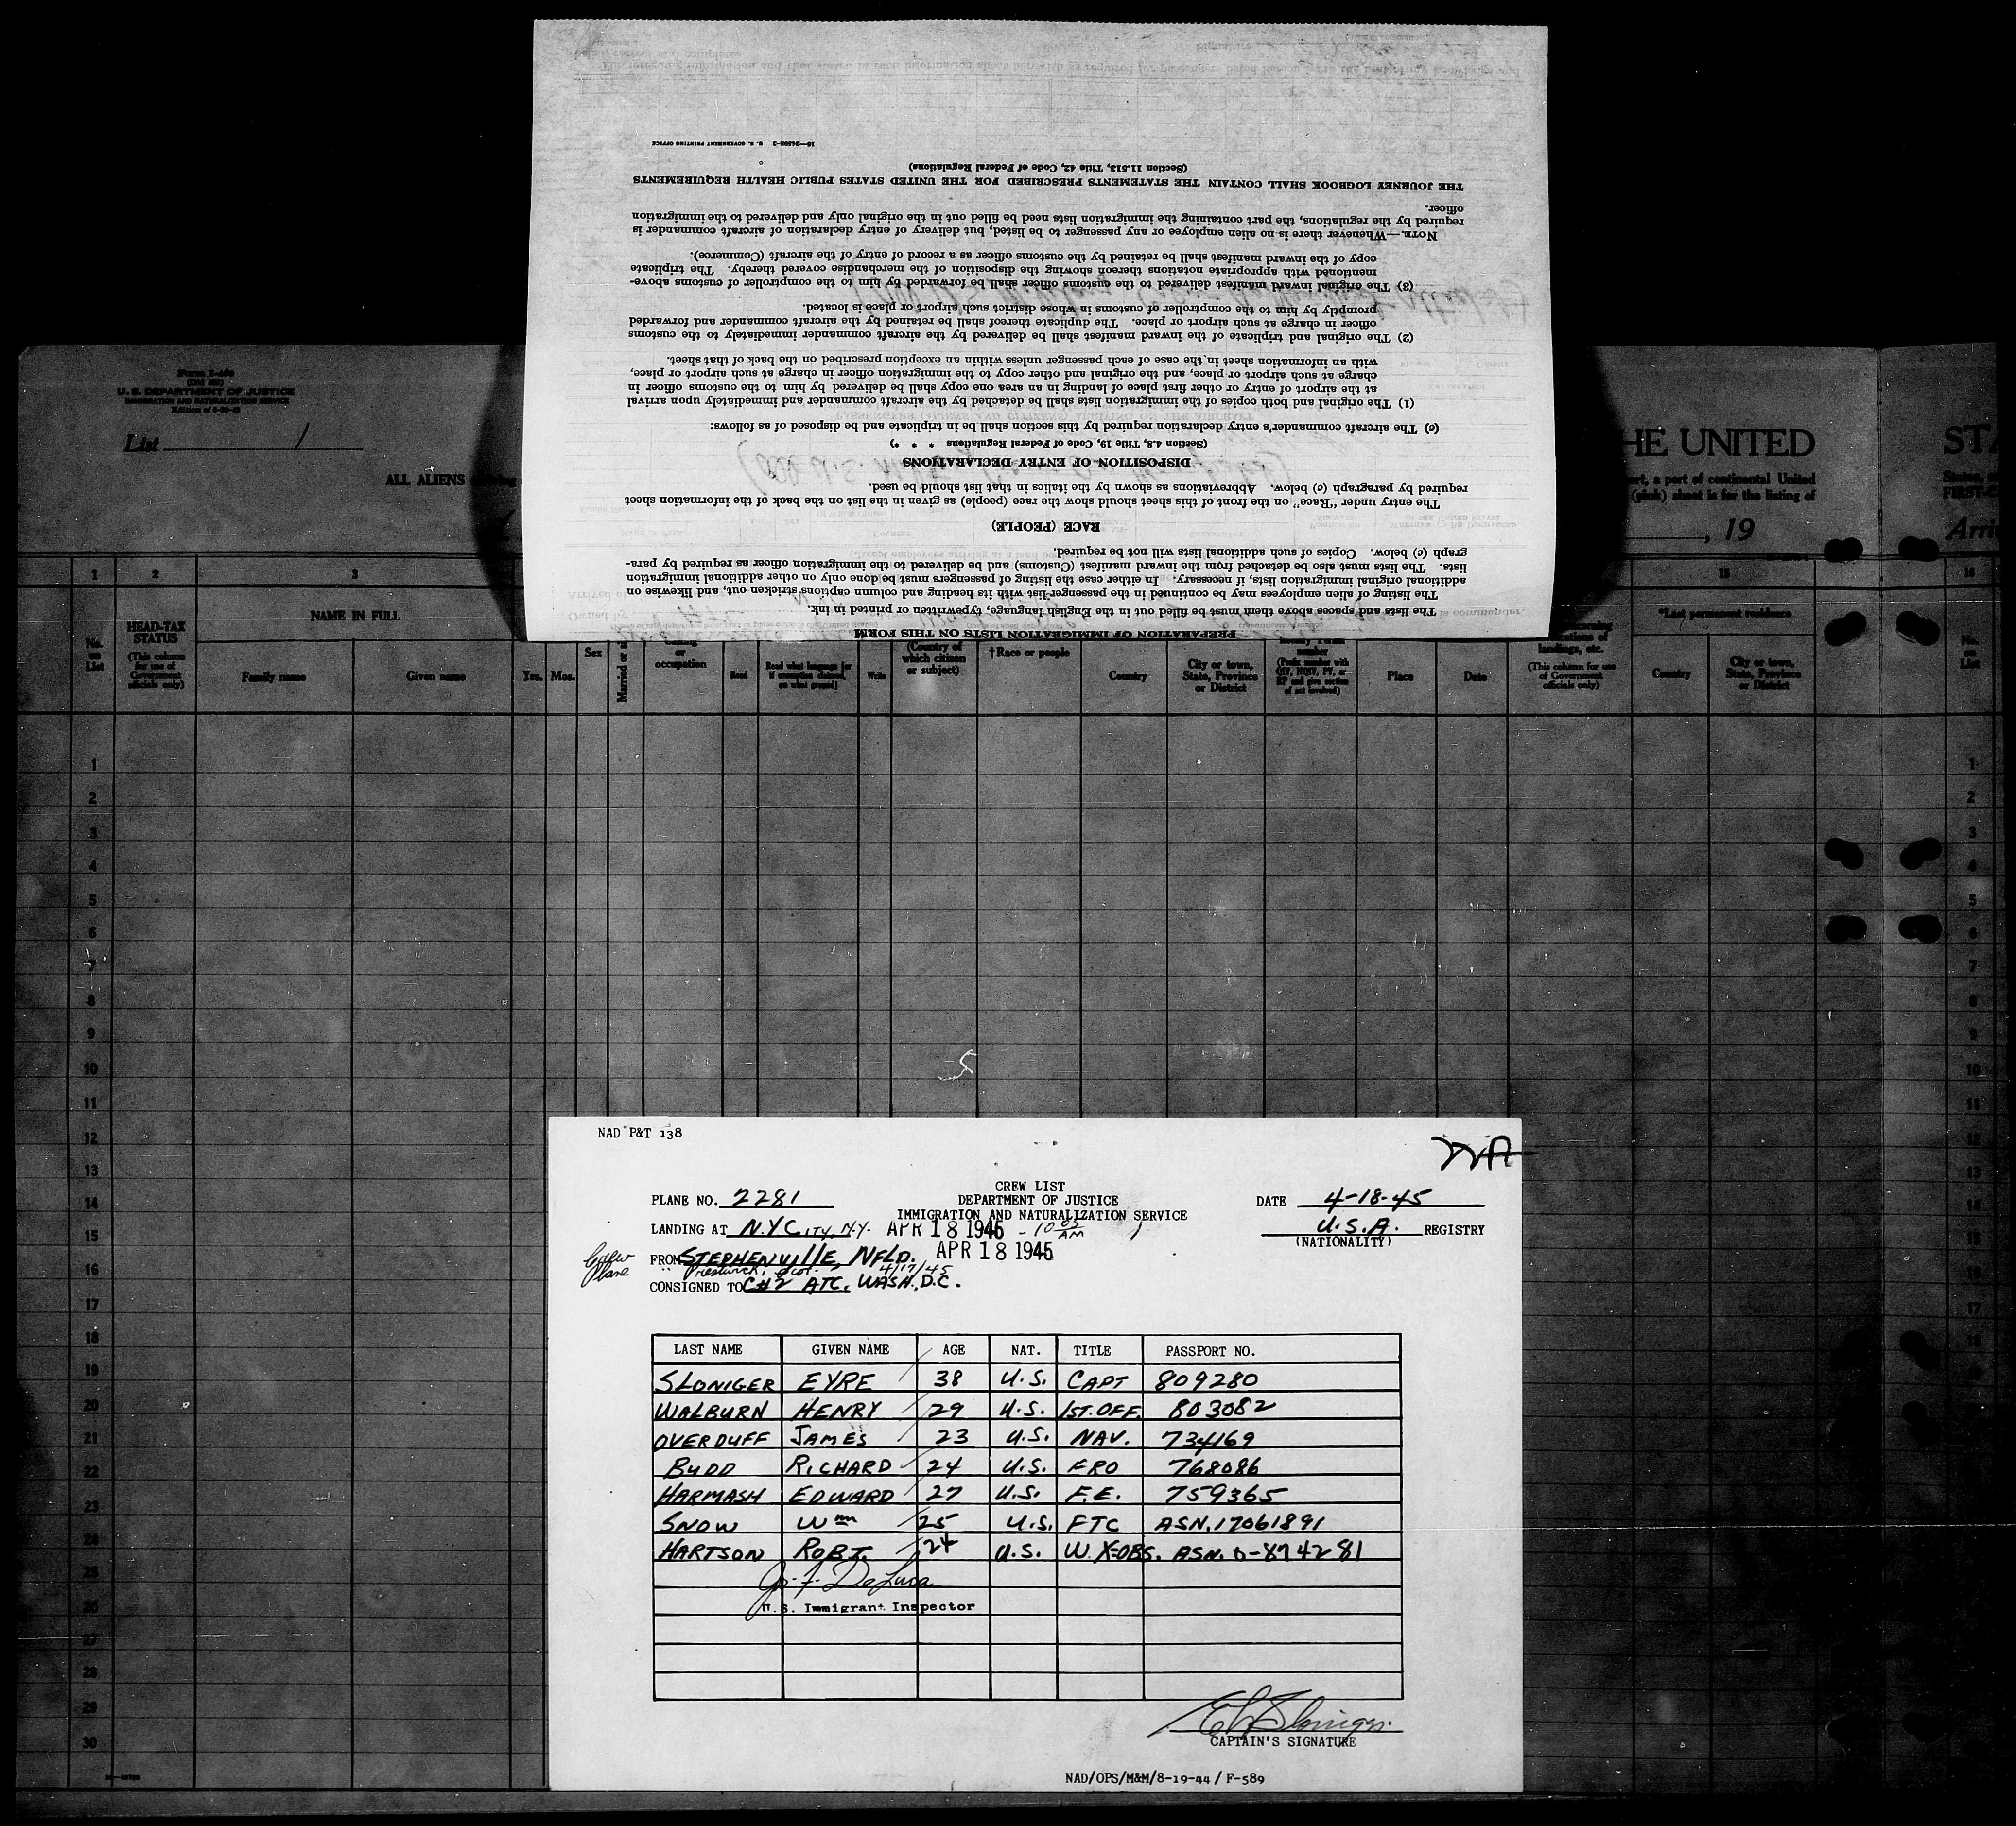 16—24508-2 U. S. GOVERNMENT PRINTING OFFICE
(Section 11.513, Title 42, Code of Federal Regulations)
THE JOURNEY LOGBOOK SHALL CONTAIN THE STATEMENTS PRESCRIBED FOR THE UNITED STATES PUBLIC HEALTH REQUIREMENTS
officer.
required by the regulations, the part containing the immigration lists need be filled out in the original only and delivered to the immigration
NOTE.—Whenever there is no alien employee or any passenger to be listed, but delivery of entry declaration of aircraft commander is
copy of the inward manifest shall be retained by the customs officer as a record of entry of the aircraft (Commerce).
mentioned with appropriate notations thereon showing the disposition of the merchandise covered thereby. The triplicate
(3) The original inward manifest delivered to the customs officer shall be forwarded by him to the comptroller of customs above-
promptly by him to the comptroller of customs in whose district such airport or place is located.
officer in charge at such airport or place. The duplicate thereof shall be retained by the aircraft commander and forwarded
(2) The original and triplicate of the inward manifest shall be delivered by the aircraft commander immediately to the customs
with an information sheet in the case of each passenger unless within an exception prescribed on the back of that sheet.
charge at such airport or place, and the original and other copy to the immigration officer in charge at such airport or place,
at the airport of entry or other first place of landing in an area one copy shall be delivered by him to the customs officer in
(1) The original and both copies of the immigration lists shall be detached by the aircraft commander and immediately upon arrival
(c) The aircraft commander's entry declaration required by this section shall be in triplicate and be disposed of as follows:
(Section 4.8, Title 19, Code of Federal Regulations * * *)
DISPOSITION OF ENTRY DECLARATIONS
required by paragraph (c) below. Abbreviations as shown by the italics in that list should be used.
The entry under "Race" on the front of this sheet should show the race (people) as given in the list on the back of the information sheet
RACE (PEOPLE)
graph (c) below. Copies of such additional lists will not be required.
lists. The lists must also be detached from the inward manifest (Customs) and be delivered to the immigration officer as required by para-
additional original immigration lists, if necessary. In either case the listing of passengers must be done only on other additional immigration
The listing of alien employees may be continued in the passenger list with its heading and column captions stricken out, and likewise on
The lists and spaces above them must be filled out in the English language, typewritten or printed in ink.
PREPARATION OF IMMIGRATION LISTS ON THIS FORM
U. S. DEPARTMENT OF JUSTICE
IMMIGRATION AND NATURALIZATION SERVICE
List 1
ALL ALIENS
HE UNITED
STA
rt, a part of continental United
(pink) sheet is for the listing of
FIRST-C
, 19
Arri
1 2 3 15 16
No. on List
HEAD-TAX STATUS
(This column for use of Government officials only)
NAME IN FULL
Family name
Given name
Yrs. Mos.
Sex
Married or
or occupation
Read
Read what language [or if exemption claimed, on what ground]
Write
(Country of which citizen or subject)
†Race or people
Country
City or town, State, Province or District
number
(Prefix number with QIV, NQIV, PV, or RP and give section of act involved)
Place
Date
landings, etc.
(This column for use of Government officials only)
*Last permanent residence
Country
City or town, State, Province or District
No. on List
1
2
3
4
5
6
7
8
9
10
11
12
13
14
15
16
17
18
19
20
21
22
23
24
25
26
27
28
29
30
NAD P&T 138
CREW LIST
PLANE NO. 2281 DEPARTMENT OF JUSTICE DATE 4-18-45
IMMIGRATION AND NATURALIZATION SERVICE
LANDING AT N.Y.CITY, N.Y. APR 18 1945 - 10 05 AM U.S.A. REGISTRY
(NATIONALITY)
FROM STEPHENVILLE, NFLD. APR 18 1945
" Prestwick, Scot. 4/17/45
Plane
CONSIGNED TO C#2 ATC. WASH., D.C.
LAST NAME GIVEN NAME AGE NAT. TITLE PASSPORT NO.
SLONIGER EYRE 38 U.S. CAPT 809280
WALBURN HENRY 29 U.S. 1ST.OFF. 803082
OVERDUFF JAMES 23 U.S. NAV. 734169
BUDD RICHARD 24 U.S. FRO 768086
HARMASH EDWARD 27 U.S. F.E. 759365
SNOW Wm 25 U.S. FTC ASN.17061891
HARTSON ROBT. 24 U.S. W.X-OBS. ASN. O-874281
U.S. Immigrant Inspector
CAPTAIN'S SIGNATURE
NAD/OPS/M&M/8-19-44 / F-589